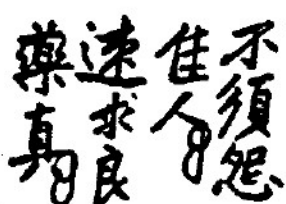 不須怨
佳人
速求良
藥真